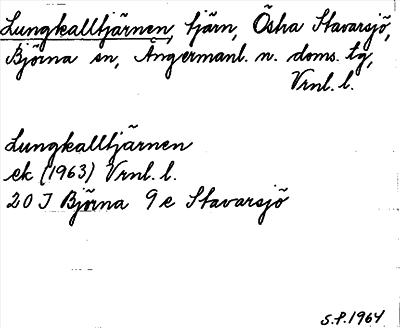 Lungkalltjärnen, tjärn, Östra Stavarsjö,
Björna sn, Ångermanl. n. doms. tg,
Vrnl. l.
Lungkalltjärnen
ek (1963) Vrnl. l.
20 J Björna 9 e Stavarsjö
S.P. 1964